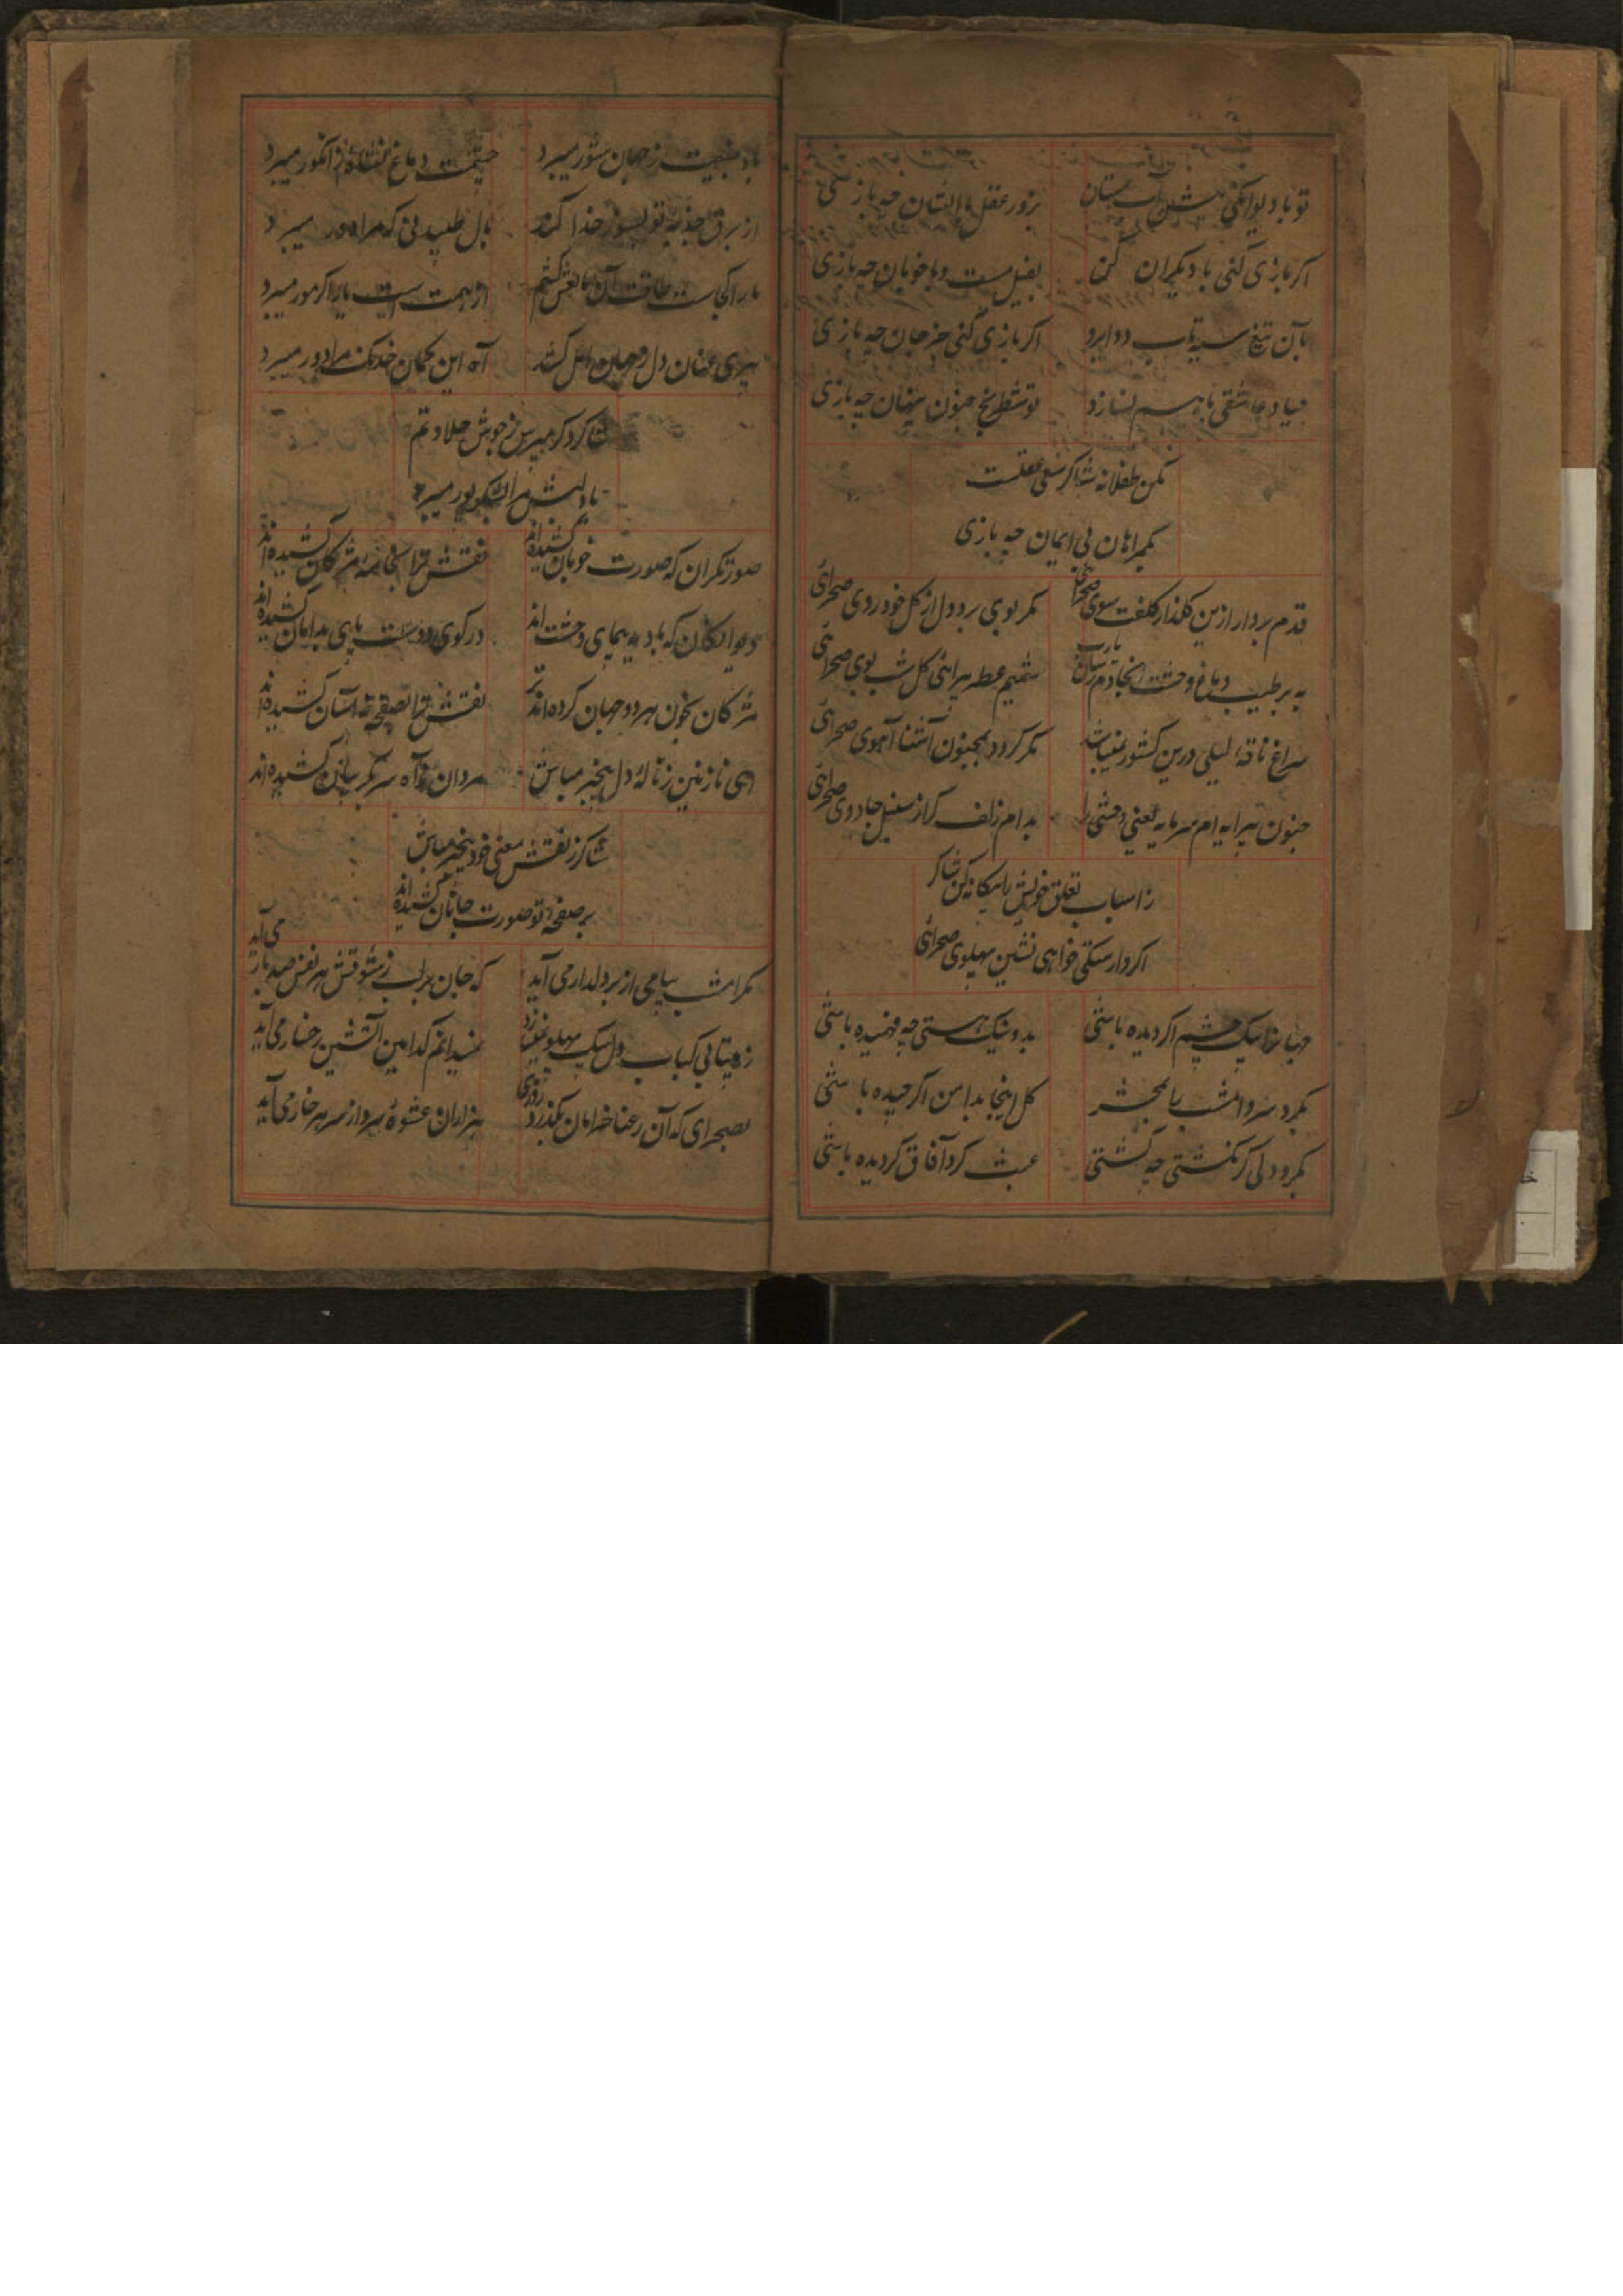 تو با دیوانگی بنشین مستان
بزور عقل با ایشان چه بازی
اگر بازی کنی با دیگران کن
بفیل مست و با خوبان چه بازی
بآن تیغ سیه تاب دو ابرو
اگر بازی کنی جز جان چه بازی
عاشقی با هم نسازد
تو شطرنج جنون پنهان چه بازی
مکن طفلانه شاکر سعی عقلت
بگمراهان بی ایمان چه بازی
قدم بردار ازین گلذار کلفت سوی صحرای
مگر بوی برد دل از گل خودروی صحرای
به بر طیب دماغ وحشت
شمیم عطر پیراهنی گل شب بوی صحرای
سراغ ناقهٔ لیلی درین کشور نمیباشد
مگر گردد بمجنون آشنا آهوی صحرای
جنون پیرایه ام سرمایه یعنی وحشتی را
بدام زلف کز سنبل جادوی صحرای
ز اسباب تعلق خویش را بیگانه کن شاکر
اگر وارستگی خواهی نشین پهلوی صحرای
بیک چشم اگر دیده باشی
بد و نیک هستی چه فهمیده باشی
بگرد سر و امشب
گل اینجا بدامن اگر چیده باشی
بگرد دلی گر نگشتی چه گشتی
عبث گرد آفاق گردیده باشی
ز جهان شور میبرد
دماغ نشاهٔ ز انگور میبرد
از برق جذبه تو بسوز خدا کند
بال طپیدنی که مرا دور میبرد
ما را کجاست طاقت آن
از همت است بار اگر مور میبرد
پیری عنان دل
آه این کمان خدنگ مرا دور میبرد
شاکر دگر مپرس ز جوش حلاوتم
یاد لبش مرا شکر پور میبرد
صورتگران که صورت خوبان کشیده اند
نقش ترا بخامهٔ مژگان کشیده اند
دیوانگان که بادیه پیمای وحشت اند
در کوی دوست پای بدامان کشیده اند
مژگان بخون هر دو جهان کرده اند تر
نقش ترا بصفحهٔ آسان کشیده اند
ای نازنین ز نالهٔ دل بیخبر مباش
مردان آه سر بگریبان کشیده اند
شاکر ز نقش معنی خود بیخبر مباش
بر صفحهٔ تو صورت جانان کشیده اند
مگر امشب پیامی از بر دلدار می آید
که جان بر لب ز شوقش هر نفس صد بار می آید
ز بیتابی کباب دل بیک پهلو نمیسازد
نمیدانم کدامین آتشین رخسار می آید
بصحرای که آن رعنا خرامان بگذرد روزی
هزاران عشوهٔ سرو از سر هر خار می آید